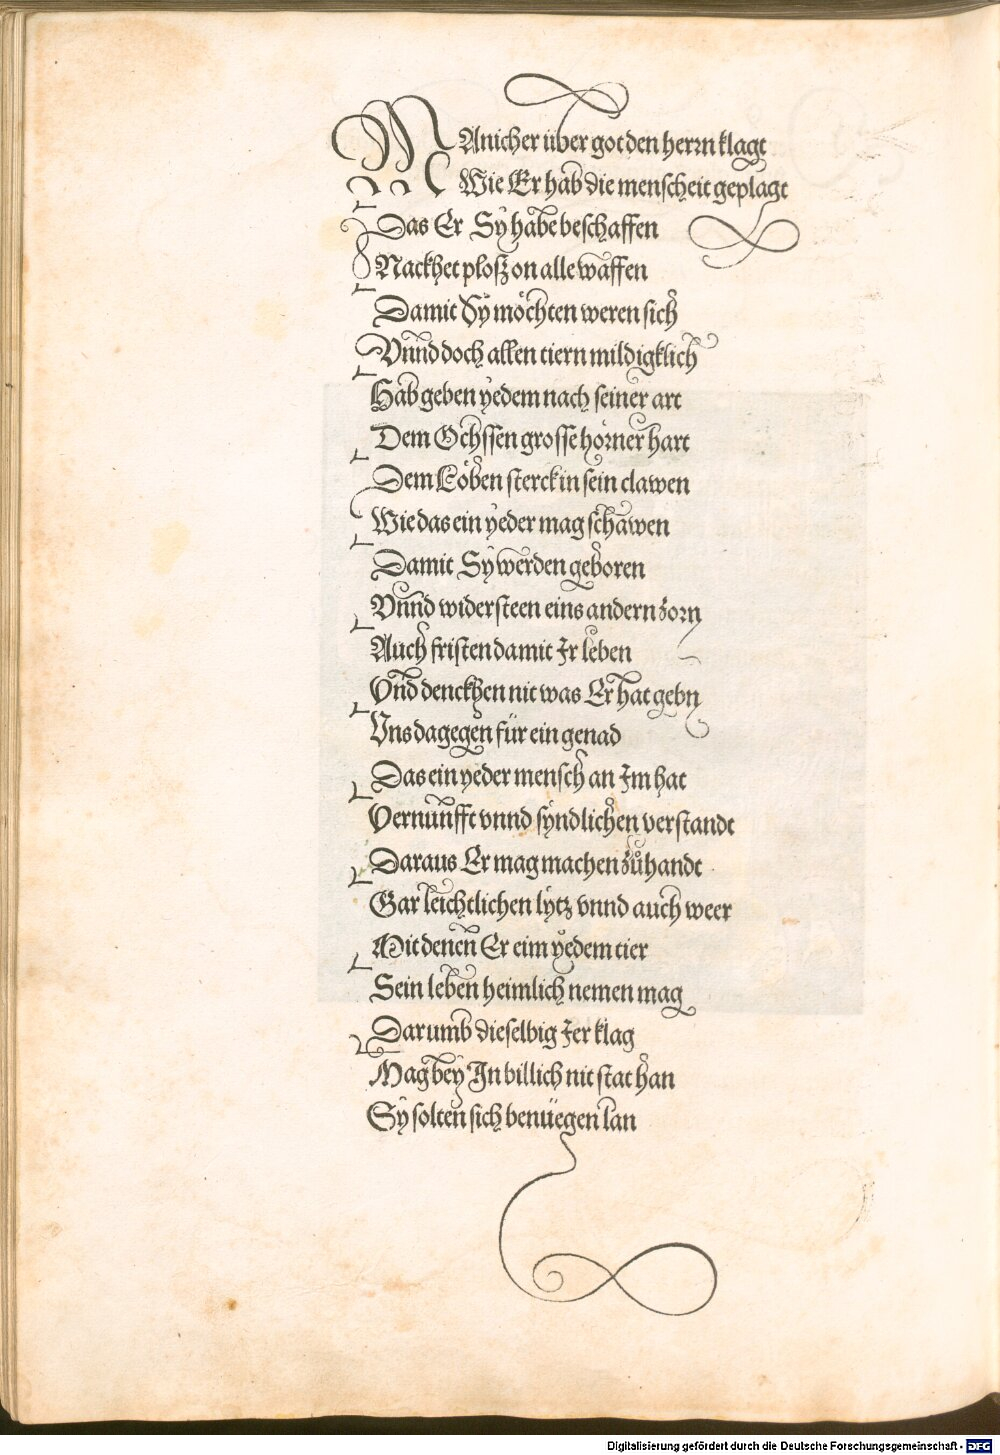 MAnicher über got den herrn klagt
Wie Er hab die menscheit geplagt
Das Er Sÿ habe beschaffen
Nackhet ploß on alle waffen
Damit Sÿ möchten weren sich
Vnnd doch allen tiern mildigklich
Hab geben ÿedem nach seiner art
Dem Ochssen grosse hörner hart
Dem Löben sterck in sein clawen
Wie das ein ÿeder mag schawen
Damit Sÿ werden geboren
Vnnd widersteen eins andern zorn
Auch fristen damit Ir leben
Vnd denckhen nit was Er hat gebn
Vns dagegen für ein genad
Das ein yeder mensch an Im hat
Vernunfft vnnd sÿndlichen verstandt
Daraus Er mag machen zůhandt
Gar leichtlichen lÿtz vnnd auch weer
Mit denen Er eim ÿedem tier
Sein leben heimlich nemen mag
Darumb dieselbig Jer klag
Mag beÿ In billich nit stat han
Sÿ solten sich benüegen lan
Digitalisierung gefördert durch die Deutsche Forschungsgemeinschaft - DFG